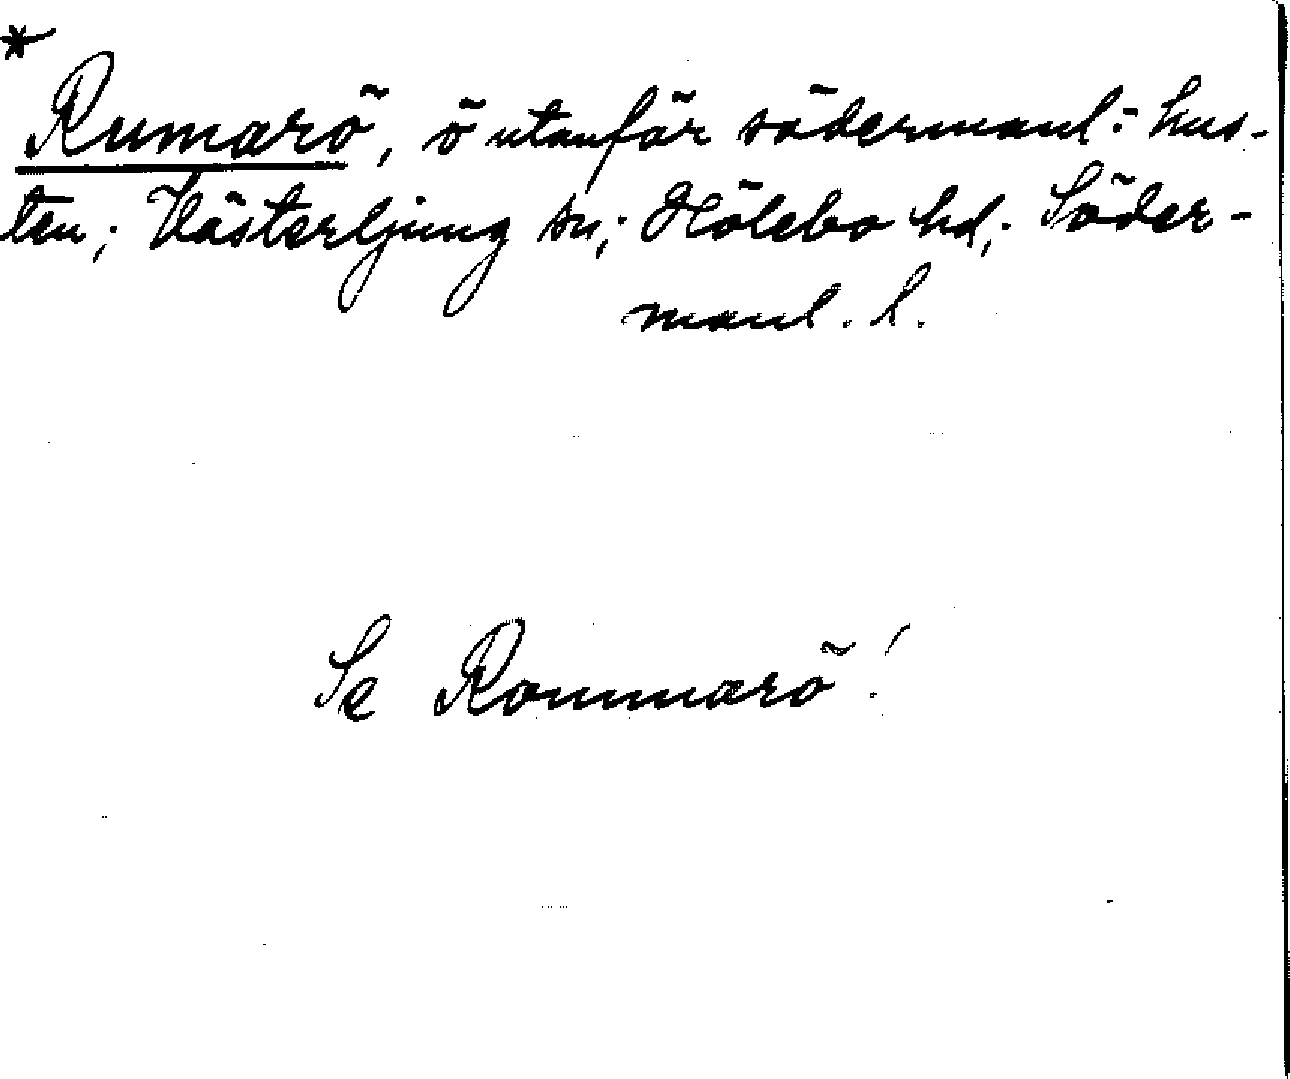 *
Rumarö, ö utanför södermanl:- kus-
ten; Västerljung sn; Hölebo hd; Söder-
manl. l.
Se Rommarö!